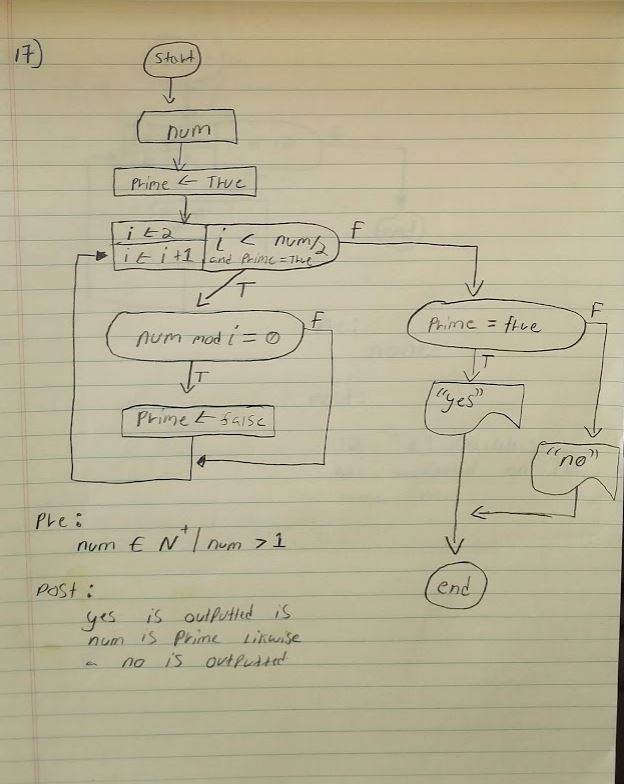 17)
Start
num
Prime ← True
i ← 2
i ← i+1
i < num/2
and Prime = True
F
T
num mod i = 0
F
T
Prime ← false
Prime = true
F
T
"yes"
"no"
end
Pre:
num ∈ N⁺ | num > 1
Post:
yes is outputted is
num is Prime likwise
a no is outputted